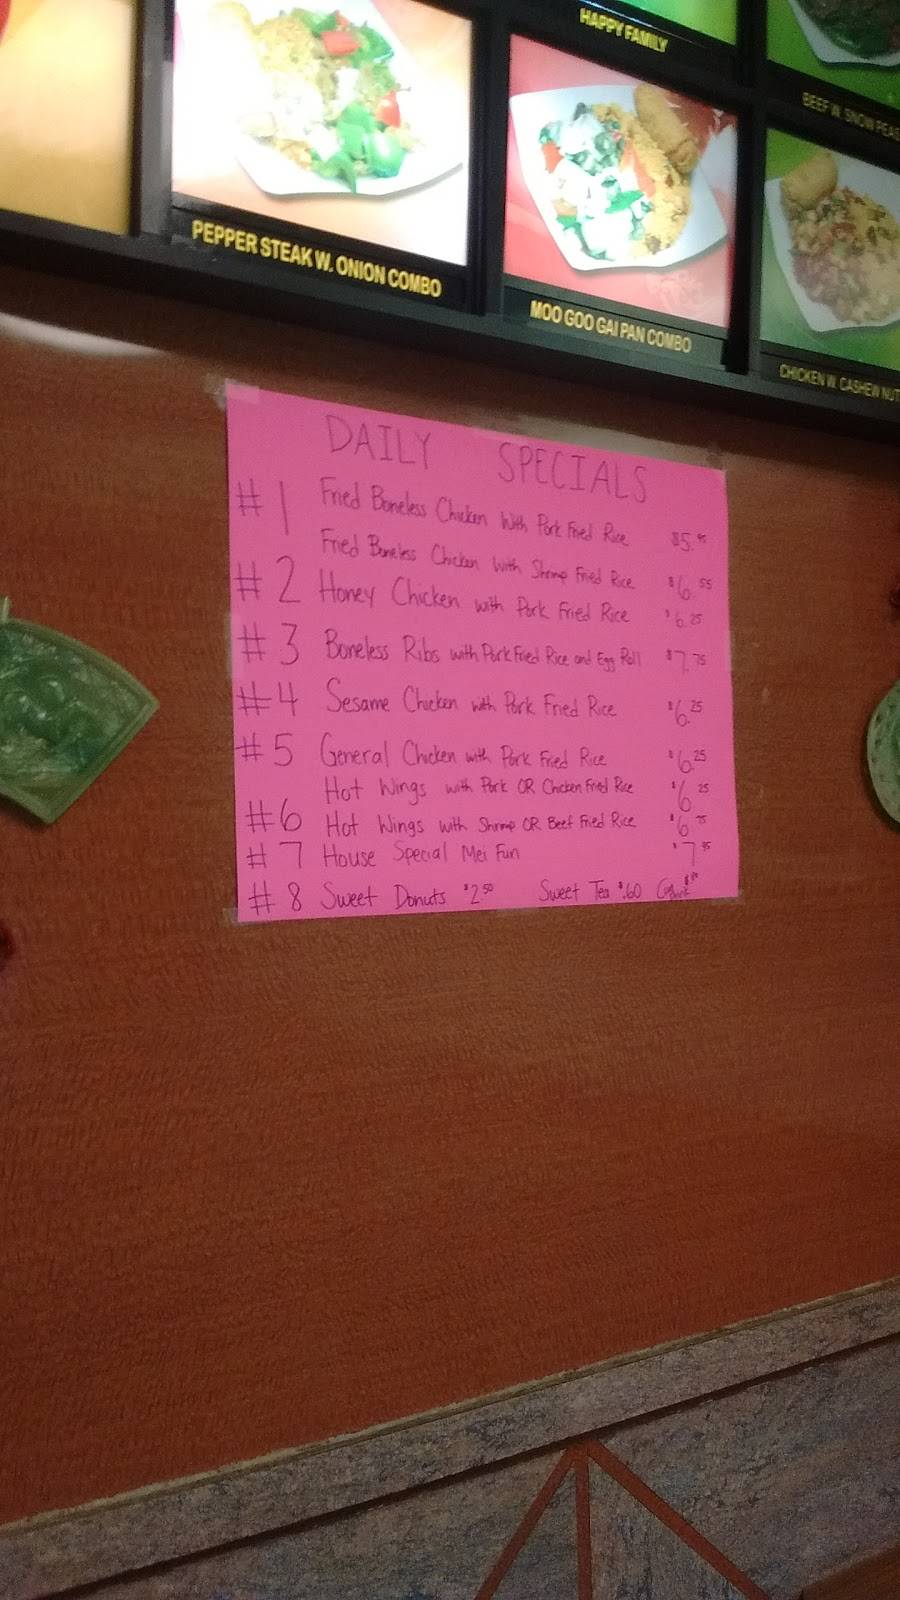 HAPPY FAMILY
BEEF W. SNOW PEAS
PEPPER STEAK W. ONION COMBO
MOO GOO GAI PAN COMBO
CHICKEN W. CASHEW NUT
DAILY SPECIALS
#1 Fried Boneless Chicken With Pork Fried Rice $5.95
Fried Boneless Chicken With Shrimp Fried Rice $6.55
#2 Honey Chicken with Pork Fried Rice $6.25
#3 Boneless Ribs with Pork Fried Rice and Egg Roll $7.75
#4 Sesame Chicken with Pork Fried Rice $6.25
#5 General Chicken with Pork Fried Rice $6.25
Hot Wings with Pork OR Chicken Fried Rice $6.25
#6 Hot Wings with Shrimp OR Beef Fried Rice $6.75
#7 House Special Mei Fun $7.95
#8 Sweet Donuts $2.50 Sweet Tea $.60